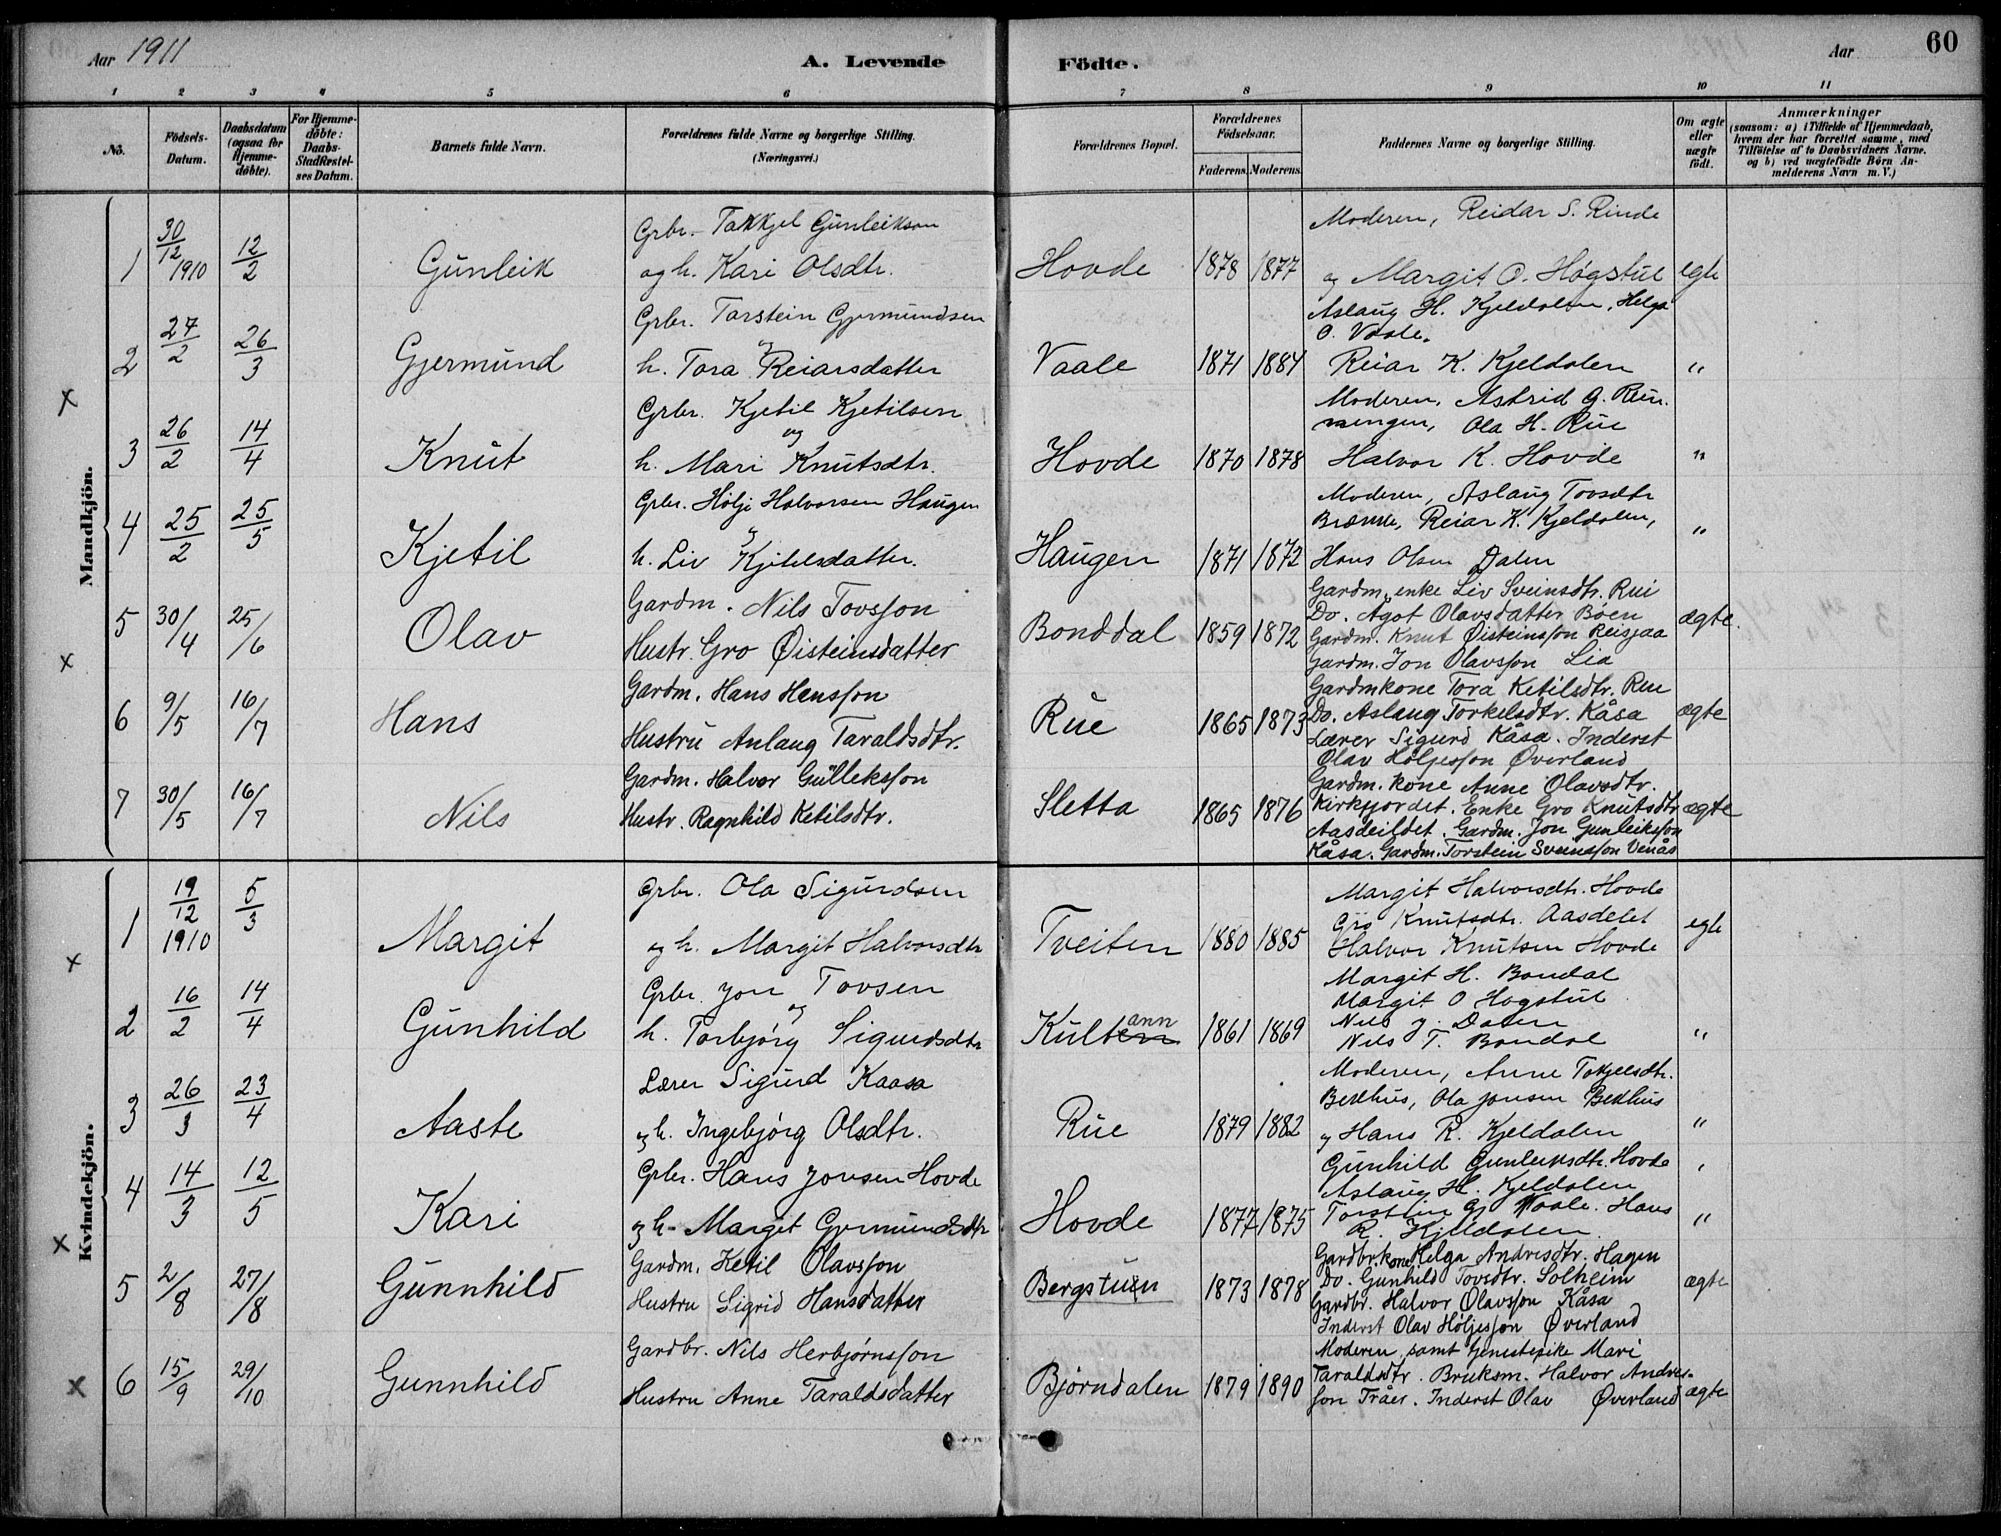 Aar 1911 A. Levende Födte. Aar 60
1 2 3 4 5 6 7 8 9 10 11
No. Födsels-Datum. Daabsdatum (ogsaa for Hjemmedöbte). For Hjemmedöbte: Daabs-Stadfestelses Datum. Barnets fulde Navn. Forældrenes fulde Navne og borgerlige Stilling. (Næringsvei.) Forældrenes Bopæl. Forældrenes Födselsaar. Faderens. Moderens. Faddernes Navne og borgerlige Stilling. Om ægte eller uægte födt. Anmærkninger (saasom: a) i Tilfælde af Hjemmedaab, hvem der har forrettet samme, med Tilföielse af to Daabsvidners Navne. og b) ved uægtefödte Börn Anmelderens Navn m. V.)
Mandkjön.
1 30/12 1910 12/2 Gunleik
Grbr. Takkjel Gunleiksen
og h. Kari Olsdtr.
Hovde 1878 1877
Moderen, Reidar S. Rinde
og Margit O. Høgstul
egte
2 27/2 26/3 Gjermund
Grbr. Torstein Gjermundsen
og
h. Tora Reiarsdatter
Vaale 1871 1884
Aslaug H. Kjeldalen, Helga
O. Vaale.
Reiar K. Kjeldalen
"
3 26/2 14/4 Knut
Grbr. Kjetil Kjetilsen
og
h. Mari Knutsdtr.
Hovde 1870 1878
Moderen, Astrid G. Run-
ningen, Ola H. Rue
Halvor K. Hovde
"
4 25/2 25/5 Kjetil
Grbr. Hølje Halvorsen Haugen
og
h. Liv Kjetelsdatter.
Haugen 1871 1872
Moderen, Aslaug Tovsdtr
Brænne, Reiar K. Kjeldalen,
Hans Olsen Dalen
"
5 30/4 25/6 Olav
Gardm. Nils Tovsson
Hustr. Gro Øisteinsdatter
Bonddal 1859 1872
Gardm.enke Liv Sveinsdtr. Rui
Do. Agot Olavsdatter Bøen
Gardm. Knut Øisteinsson Reisjaa
Gardm. Jon Olavsson Lia
ægte.
6 9/5 16/7 Hans
Gardm. Hans Hansson
Hustru Anlaug Taraldsdtr.
Rue 1865 1873
Gardmkone Tora Ketilsdtr. Rue
Do. Aslaug Torkelsdtr. Kåsa
Lærer Sigurd Kåsa. Inderst
Olav Høljesson Øverland
ægte
7 30/5 16/7 Nils
Gardm. Halvor Gulleksson
Hustr. Ragnhild Ketilsdtr.
Sletta 1865 1876
Gardm. kone Anne Olavsdtr.
Kirkfjordet. Enke Gro Knutsdtr
Aasdeildet. Gardm. Jon Gunleiksson
Kåsa. Gardm. Torstein Sveinsson Venås
ægte
Kvindekjön.
1 19/12 1910 5/3 Margit
Grbr. Ola Sigurdsen
og h. Margit Halvorsdtr
Tveiten 1880 1885
Margit Halvorsdtr. Hovde
Gro Knutsdtr. Aasdelet
Halvor Knutsen Hovde
egte
2 16/2 14/4 Gunhild
Grbr. Jon Tovsen
og
h. Torbjørg Sigurdsdtr
Kultenn ann 1861 1869
Margit H. Bondal
Margit O Høgstul
Nils J. Dalen
Nils T. Bondal
"
3 26/3 23/4 Aaste
Lærer Sigurd Kaasa
og h. Ingebjørg Olsdtr.
Rue 1879 1882
Moderen, Anne Tokjelsdtr.
Bekhus, Ola Jonsen Bekhus
og Hans R. Kjeldalen
"
4 14/3 12/5 Kari
Grbr. Hans Jonsen Hovde
og h. Margit Gjermundsdtr
Hovde 1877 1875
Gunhild Gunleiksdtr. Hovde
Aslaug H. Kjeldalen
Torstein Gj Vaale. Hans
R. Kjeldalen.
"
5 2/8 27/8 Gunnhild
Gardm. Ketil Olavsson
Hustru Sigrid Hansdatter
Bergstuen 1873 1878
Gardbr.kone Helga Andresdtr. Hagen
Do. Gunhild Tovsdtr. Solheim
Gardbr. Halvor Olavsson Kåsa
Inderst Olav Høljesson Øverland
ægte
6 15/9 29/10 Gunnhild
Gardbr. Nils Herbjørnsson
Hustru Anne Taraldsdatter
Bjørndalen 1879 1890
Moderen, samt tjenestepike Mari
Taraldsdtr. Bruksm. Halvor Andres-
son Tråer. Inderst Olav Øverland
ægte